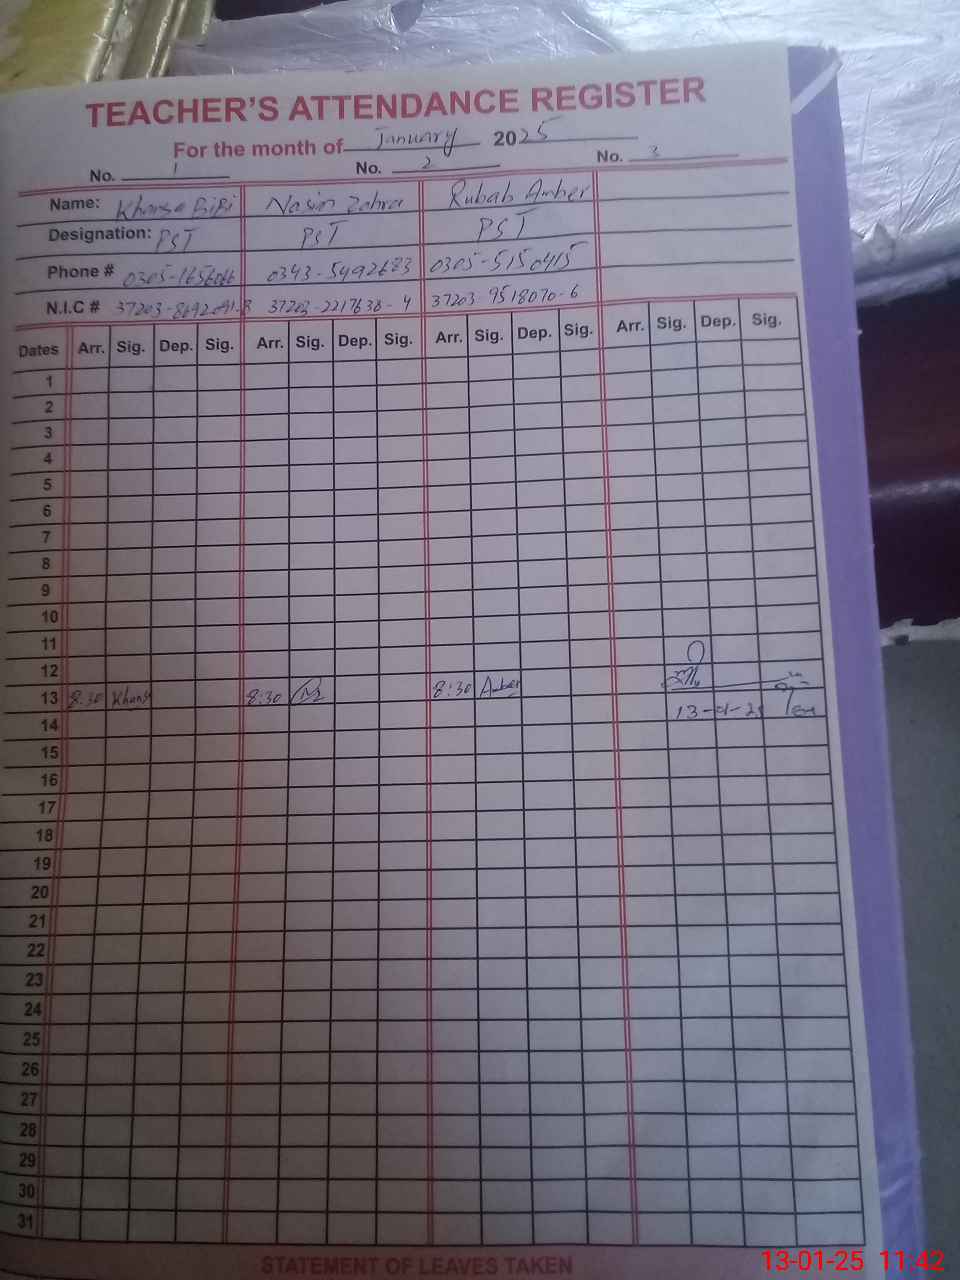 TEACHER'S ATTENDANCE REGISTER
For the month of January 2025
No. 1 No. 2 No. 3
Name: Khansa BiBi Nasim Zahra Rubab Amber
Designation: PST PST PST
Phone # 0305-1656066 0343-5492683 0305-5150415
N.I.C # 37203-8692091-8 37203-2217638-4 37203-9518070-6
Dates Arr. Sig. Dep. Sig. Arr. Sig. Dep. Sig. Arr. Sig. Dep. Sig. Arr. Sig. Dep. Sig.
1
2
3
4
5
6
7
8
9
10
11
12
13 8:30 Khansa 8:30 8:30 Amber
13-01-25
14
15
16
17
18
19
20
21
22
23
24
25
26
27
28
29
30
31
STATEMENT OF LEAVES TAKEN
13-01-25 11:42